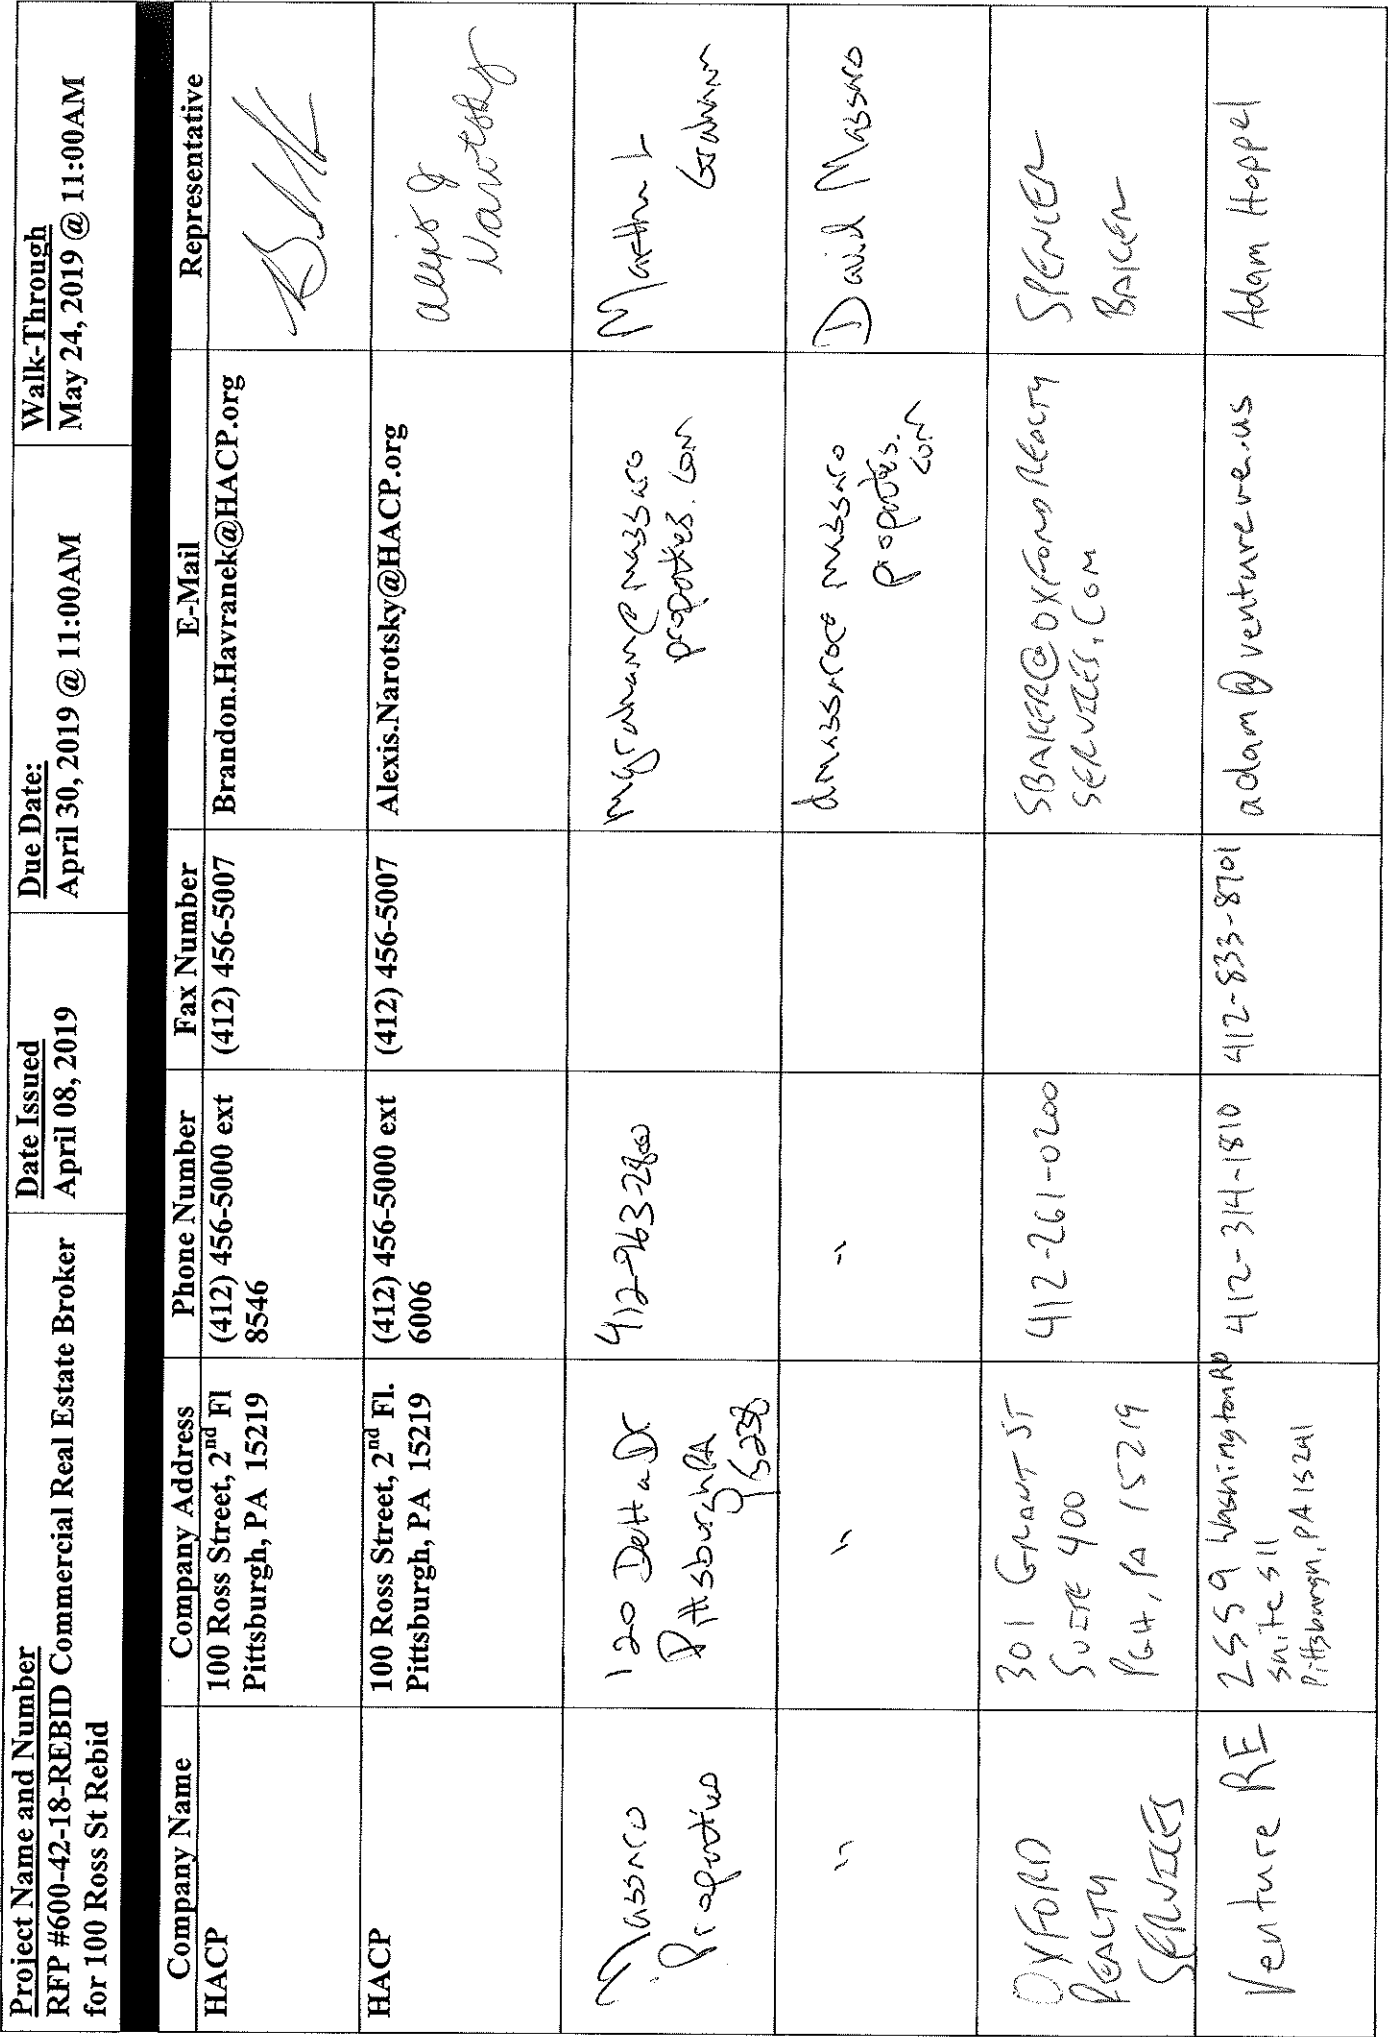 Project Name and Number
RFP #600-42-18-REBID Commercial Real Estate Broker
for 100 Ross St Rebid
Date Issued
April 08, 2019
Due Date:
April 30, 2019 @ 11:00AM
Walk-Through
May 24, 2019 @ 11:00AM
Company Name
Company Address
Phone Number
Fax Number
E-Mail
Representative
HACP
100 Ross Street, 2nd Fl
Pittsburgh, PA 15219
(412) 456-5000 ext
8546
(412) 456-5007
Brandon.Havranek@HACP.org
HACP
100 Ross Street, 2nd Fl.
Pittsburgh, PA 15219
(412) 456-5000 ext
6006
(412) 456-5007
Alexis.Narotsky@HACP.org
Alexis J
Narotsky
Massaro
Properties
120 Delta Dr
Pittsburgh PA
15238
412-963-2800
mgraham@massaro
properties.com
Martha L
Graham
"
"
"
dmassaro@massaro
properties.
com
David Massaro
OXFORD
REALTY
SERVICES
301 GRANT ST
SUITE 400
PGH, PA 15219
412-261-0200
SBAKER@OXFORDREALTY
SERVICES.COM
SPENCER
BAKER
Venture RE
2559 Washington RD
Suite 511
Pittsburgh, PA 15241
412-314-1810
412-833-8701
adam@venturere.us
Adam Hoppel